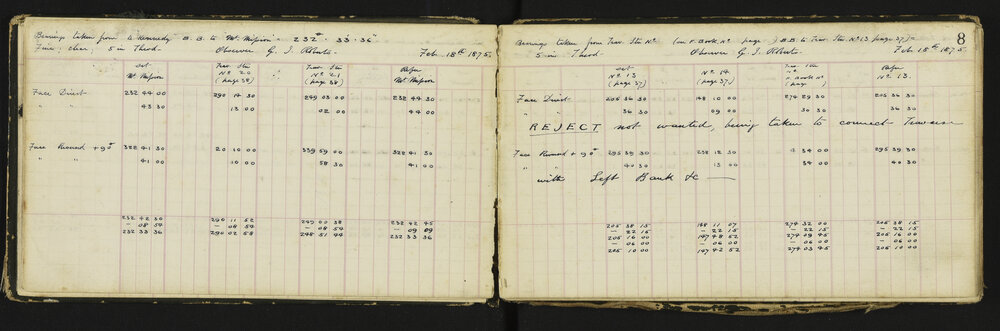 Bearings taken from to Kennedy B.B. to Mt. Mission - 232° 33' 36"
Fine; clear; 5 in Theod. Observer G. J. Roberts. Feb. 18th 1875.
Set Mt Mission
Trav. Stn No 20 (page 38)
Trav. Stn No 21 (page 38)
Refer Mt. Mission
Face Direct 232 44 00 290 14 30 249 03 00 232 44 30
" " 43 30 13 00 02 00 44 00
Face Round + 90° 322 41 30 20 10 00 339 59 00 322 41 30
" " 41 00 10 00 58 30 41 00
232 42 30 290 11 52 249 00 38 232 42 45
- 08 54 - 08 54 - 08 54 - 09 09
232 33 36 290 02 58 248 51 44 232 33 36
8
Bearings taken from Trav. Stn No (in F. Book No page ) B.B. to Trav. Stn No 13 (page 37) =
5 in Theod Observer G. J. Roberts. Feb. 18th 1875.
Set No 13 (page 37)
Trav. Stn No 14 (page 37)
Trav. Stn No F. Book No (page )
Refer No 13.
Face Direct 205 36 30 148 10 00 274 29 30 205 36 30
" " 36 30 09 00 30 30 36 30
REJECT not wanted, being taken to connect Traverse
Face Round + 90° 295 39 30 238 12 30 4 34 00 295 39 30
" " 40 30 13 00 34 00 40 30
with Left Bank &c
205 38 15 148 11 07 274 32 00 205 38 15
- 22 15 - 22 15 - 22 15 - 22 15
205 16 00 147 48 52 274 09 45 205 16 00
- 06 00 - 06 00 - 06 00 - 06 00
205 10 00 147 42 52 274 03 45 205 10 00